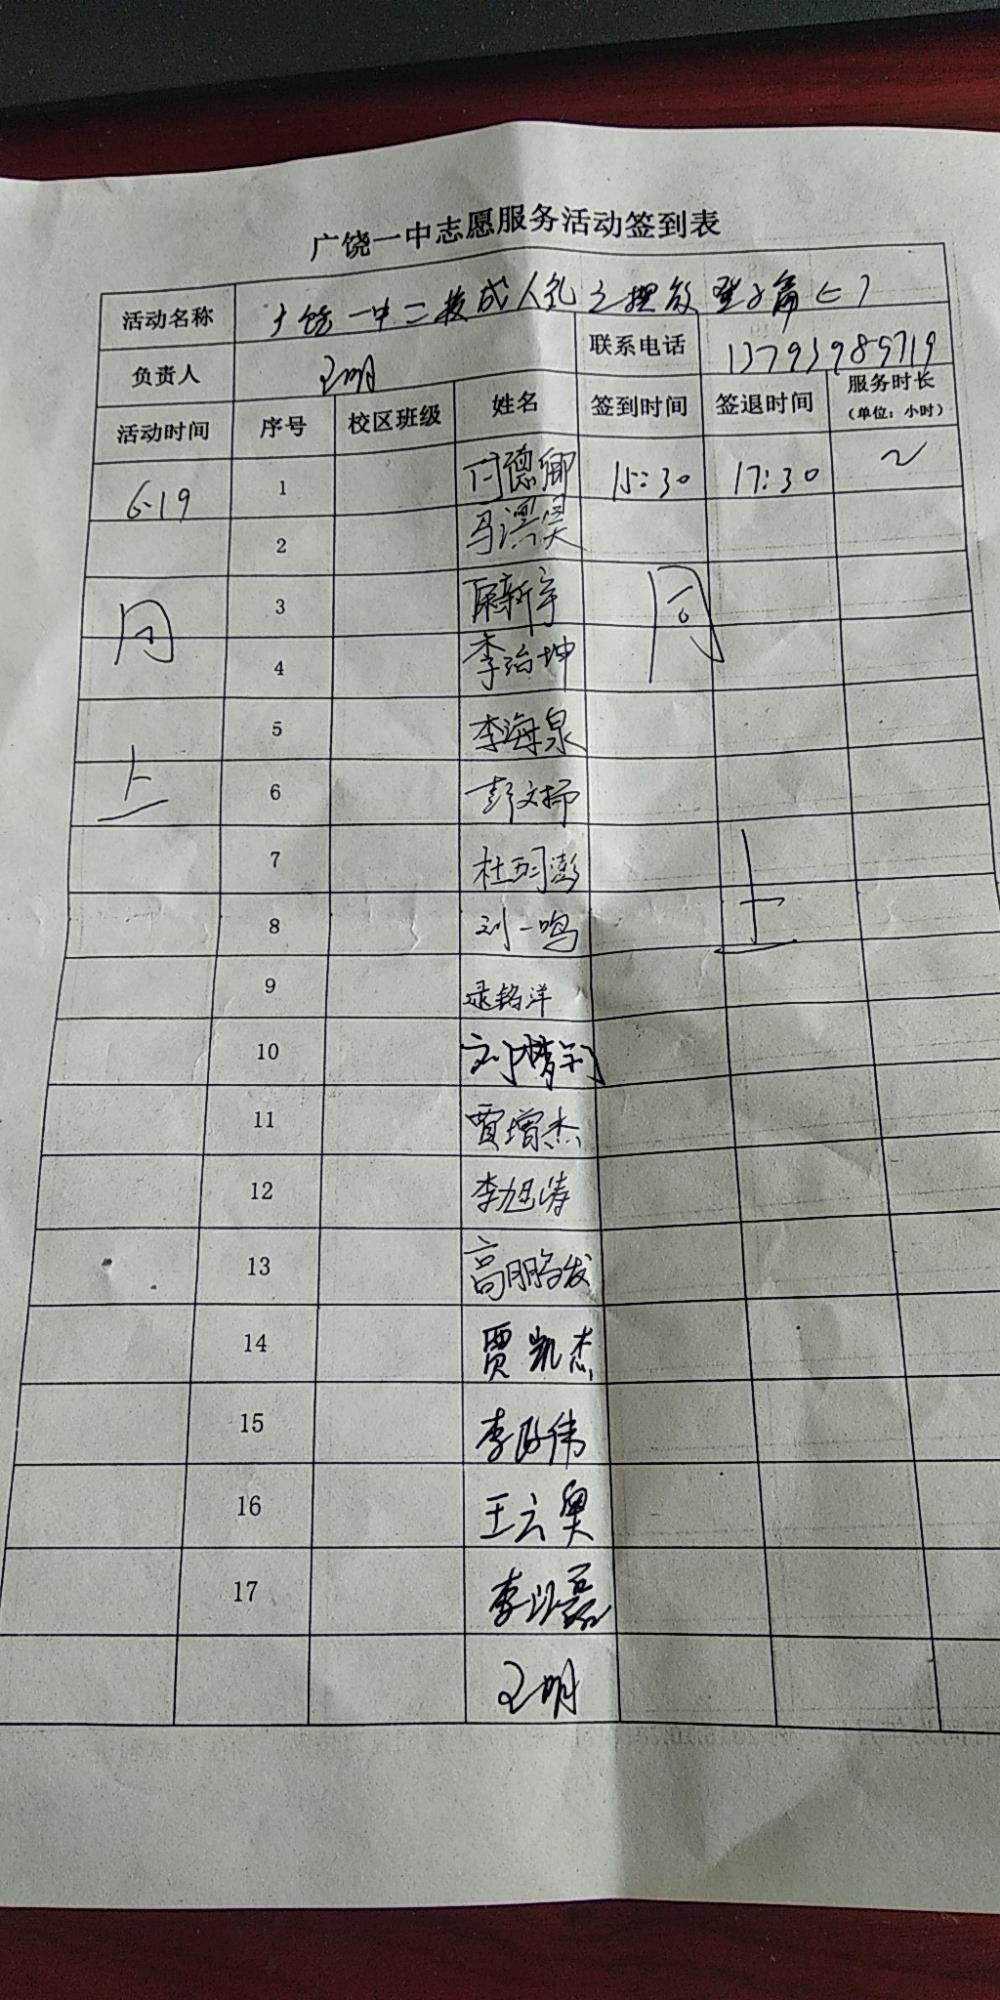 广饶一中志愿服务活动签到表
活动名称 广饶一中二校成人礼之摆放凳子篇（二）
负责人 王明 联系电话 13793985719
活动时间 序号 校区班级 姓名 签到时间 签退时间 服务时长（单位：小时）
6.19 1 付德卿 15:30 17:30 2
2 马淏昊
同 3 新宇 同
4 李治坤
5 李海泉
上 6 彭文扬
7 杜珂澎 上
8 刘一鸣
9 铭洋
10 刘梦
11 贾增杰
12 李旭涛
13 高鹏发
14 贾凯杰
15 李政伟
16 王云奥
17 李磊
王明